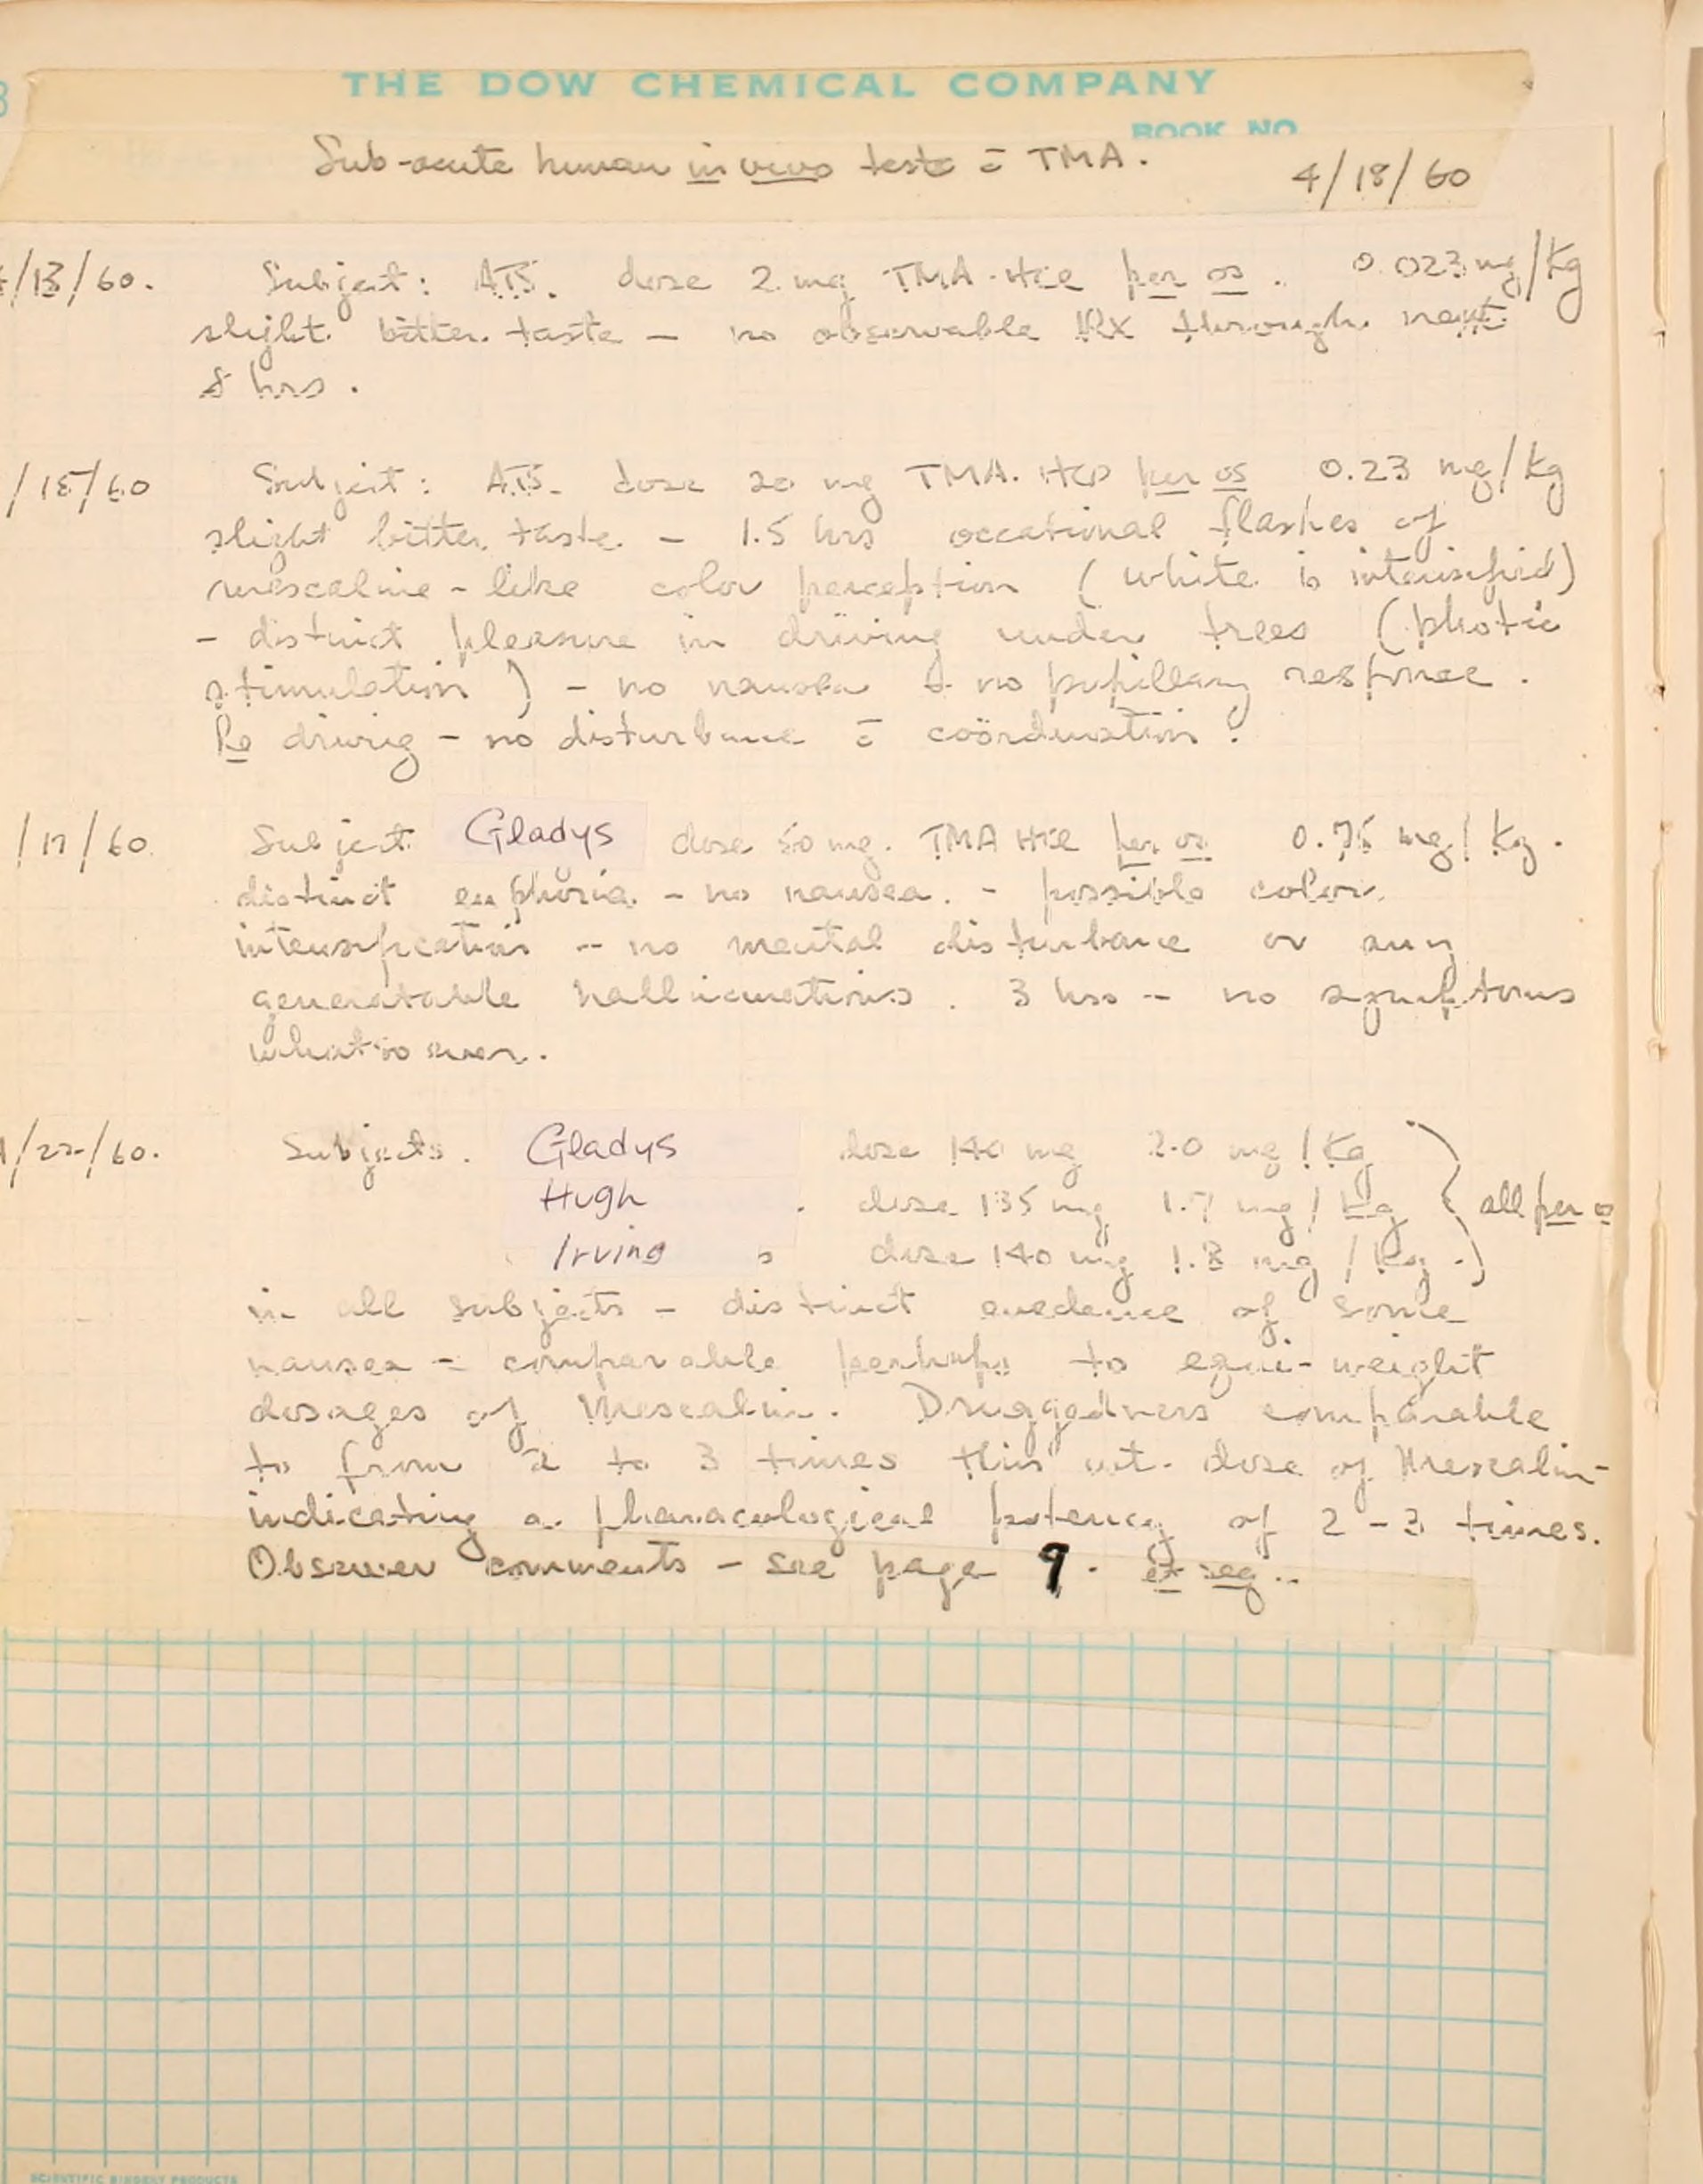 THE DOW CHEMICAL COMPANY
BOOK NO.
Sub-acute human in vivo tests c̄ TMA.
4/18/60
4/13/60. Subject: ATS. dose 2 mg TMA·HCl per os. 0.023 mg/Kg
slight bitter taste – no observable RX through next
8 hrs.
/15/60 Subject: ATS. dose 20 mg TMA·HCl per os 0.23 mg/Kg
slight bitter taste – 1.5 hrs occational flashes of
mescaline-like color perception (white is intensified)
- distinct pleasure in driving under trees (photic
stimulation) – no nausea & no pupillary response.
Re driving – no disturbance c̄ coördination.
/17/60 Subject Gladys dose 50 mg. TMA HCl per os 0.75 mg/Kg.
distinct euphoria – no nausea. – possible color
intensification – no mental disturbance or any
generatable hallucinations. 3 hrs – no symptoms
whatsoever.
/22/60. Subjects. Gladys dose 140 mg 2.0 mg/Kg
Hugh dose 135 mg 1.7 mg/Kg all per os
Irving dose 140 mg 1.8 mg/Kg.
in all subjects – distinct evedence of some
nausea – comparable perhaps to equi-weight
dosages of Mescalin. Druggedness comparable
to from 2 to 3 times this wt. dose of Mescalin-
indicating a pharacological potency of 2–3 times.
Observer comments – see page 9. et seq..
SCIENTIFIC BINDERY PRODUCTS